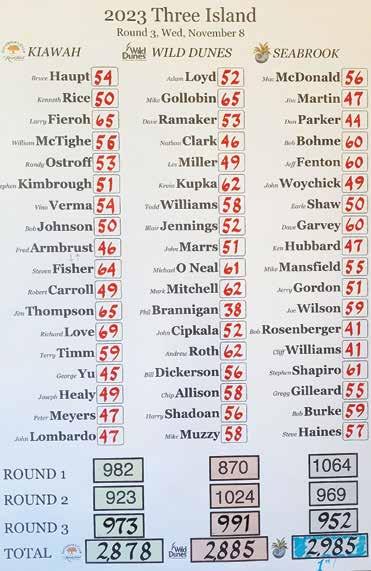 2023 Three Island
Round 3, Wed, November 8
KIAWAH Wild Dunes WILD DUNES SEABROOK
Bruce Haupt 54 Adam Loyd 52 Mac McDonald 56
Kenneth Rice 50 Mike Gollobin 65 Jim Martin 47
Larry Fieroh 65 Dave Ramaker 53 Dan Parker 44
William McTighe 56 Nathan Clark 46 Bob Bohme 60
Randy Ostroff 53 Les Miller 49 Jeff Fenton 60
Stephen Kimbrough 51 Kevin Kupka 62 John Woychick 49
Vino Verma 54 Todd Williams 58 Earle Shaw 50
Bob Johnson 50 Blair Jennings 52 Dave Garvey 60
Fred Armbrust 46 John Marrs 51 Ken Hubbard 47
Steven Fisher 64 Michael O Neal 61 Mike Mansfield 55
Robert Carroll 49 Mark Mitchell 62 Jerry Gordon 51
Jim Thompson 65 Phil Brannigan 38 Joe Wilson 59
Richard Love 69 John Cipkala 52 Bob Rosenberger 41
Terry Timm 59 Andrew Roth 62 Cliff Williams 41
George Yu 45 Bill Dickerson 56 Stephen Shapiro 61
Joseph Healy 49 Chip Allison 58 Gregg Gilleard 55
Peter Meyers 47 Harry Shadoan 56 Bob Burke 59
John Lombardo 47 Mike Muzzy 58 Steve Haines 57
ROUND 1 982 870 1064
ROUND 2 923 1024 969
ROUND 3 973 991 952
TOTAL 2,878 Wild Dunes 2,885 2,985